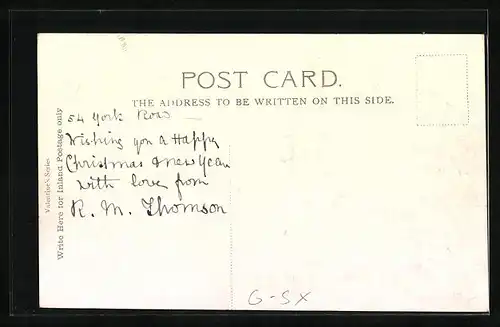 POST CARD.
THE ADDRESS TO BE WRITTEN ON THIS SIDE.
Valentine's Series
Write Here for Inland Postage only
54 York Road
Wishing you a Happy
Christmas & New Year
with love from
R. M. Thomson
G-SX